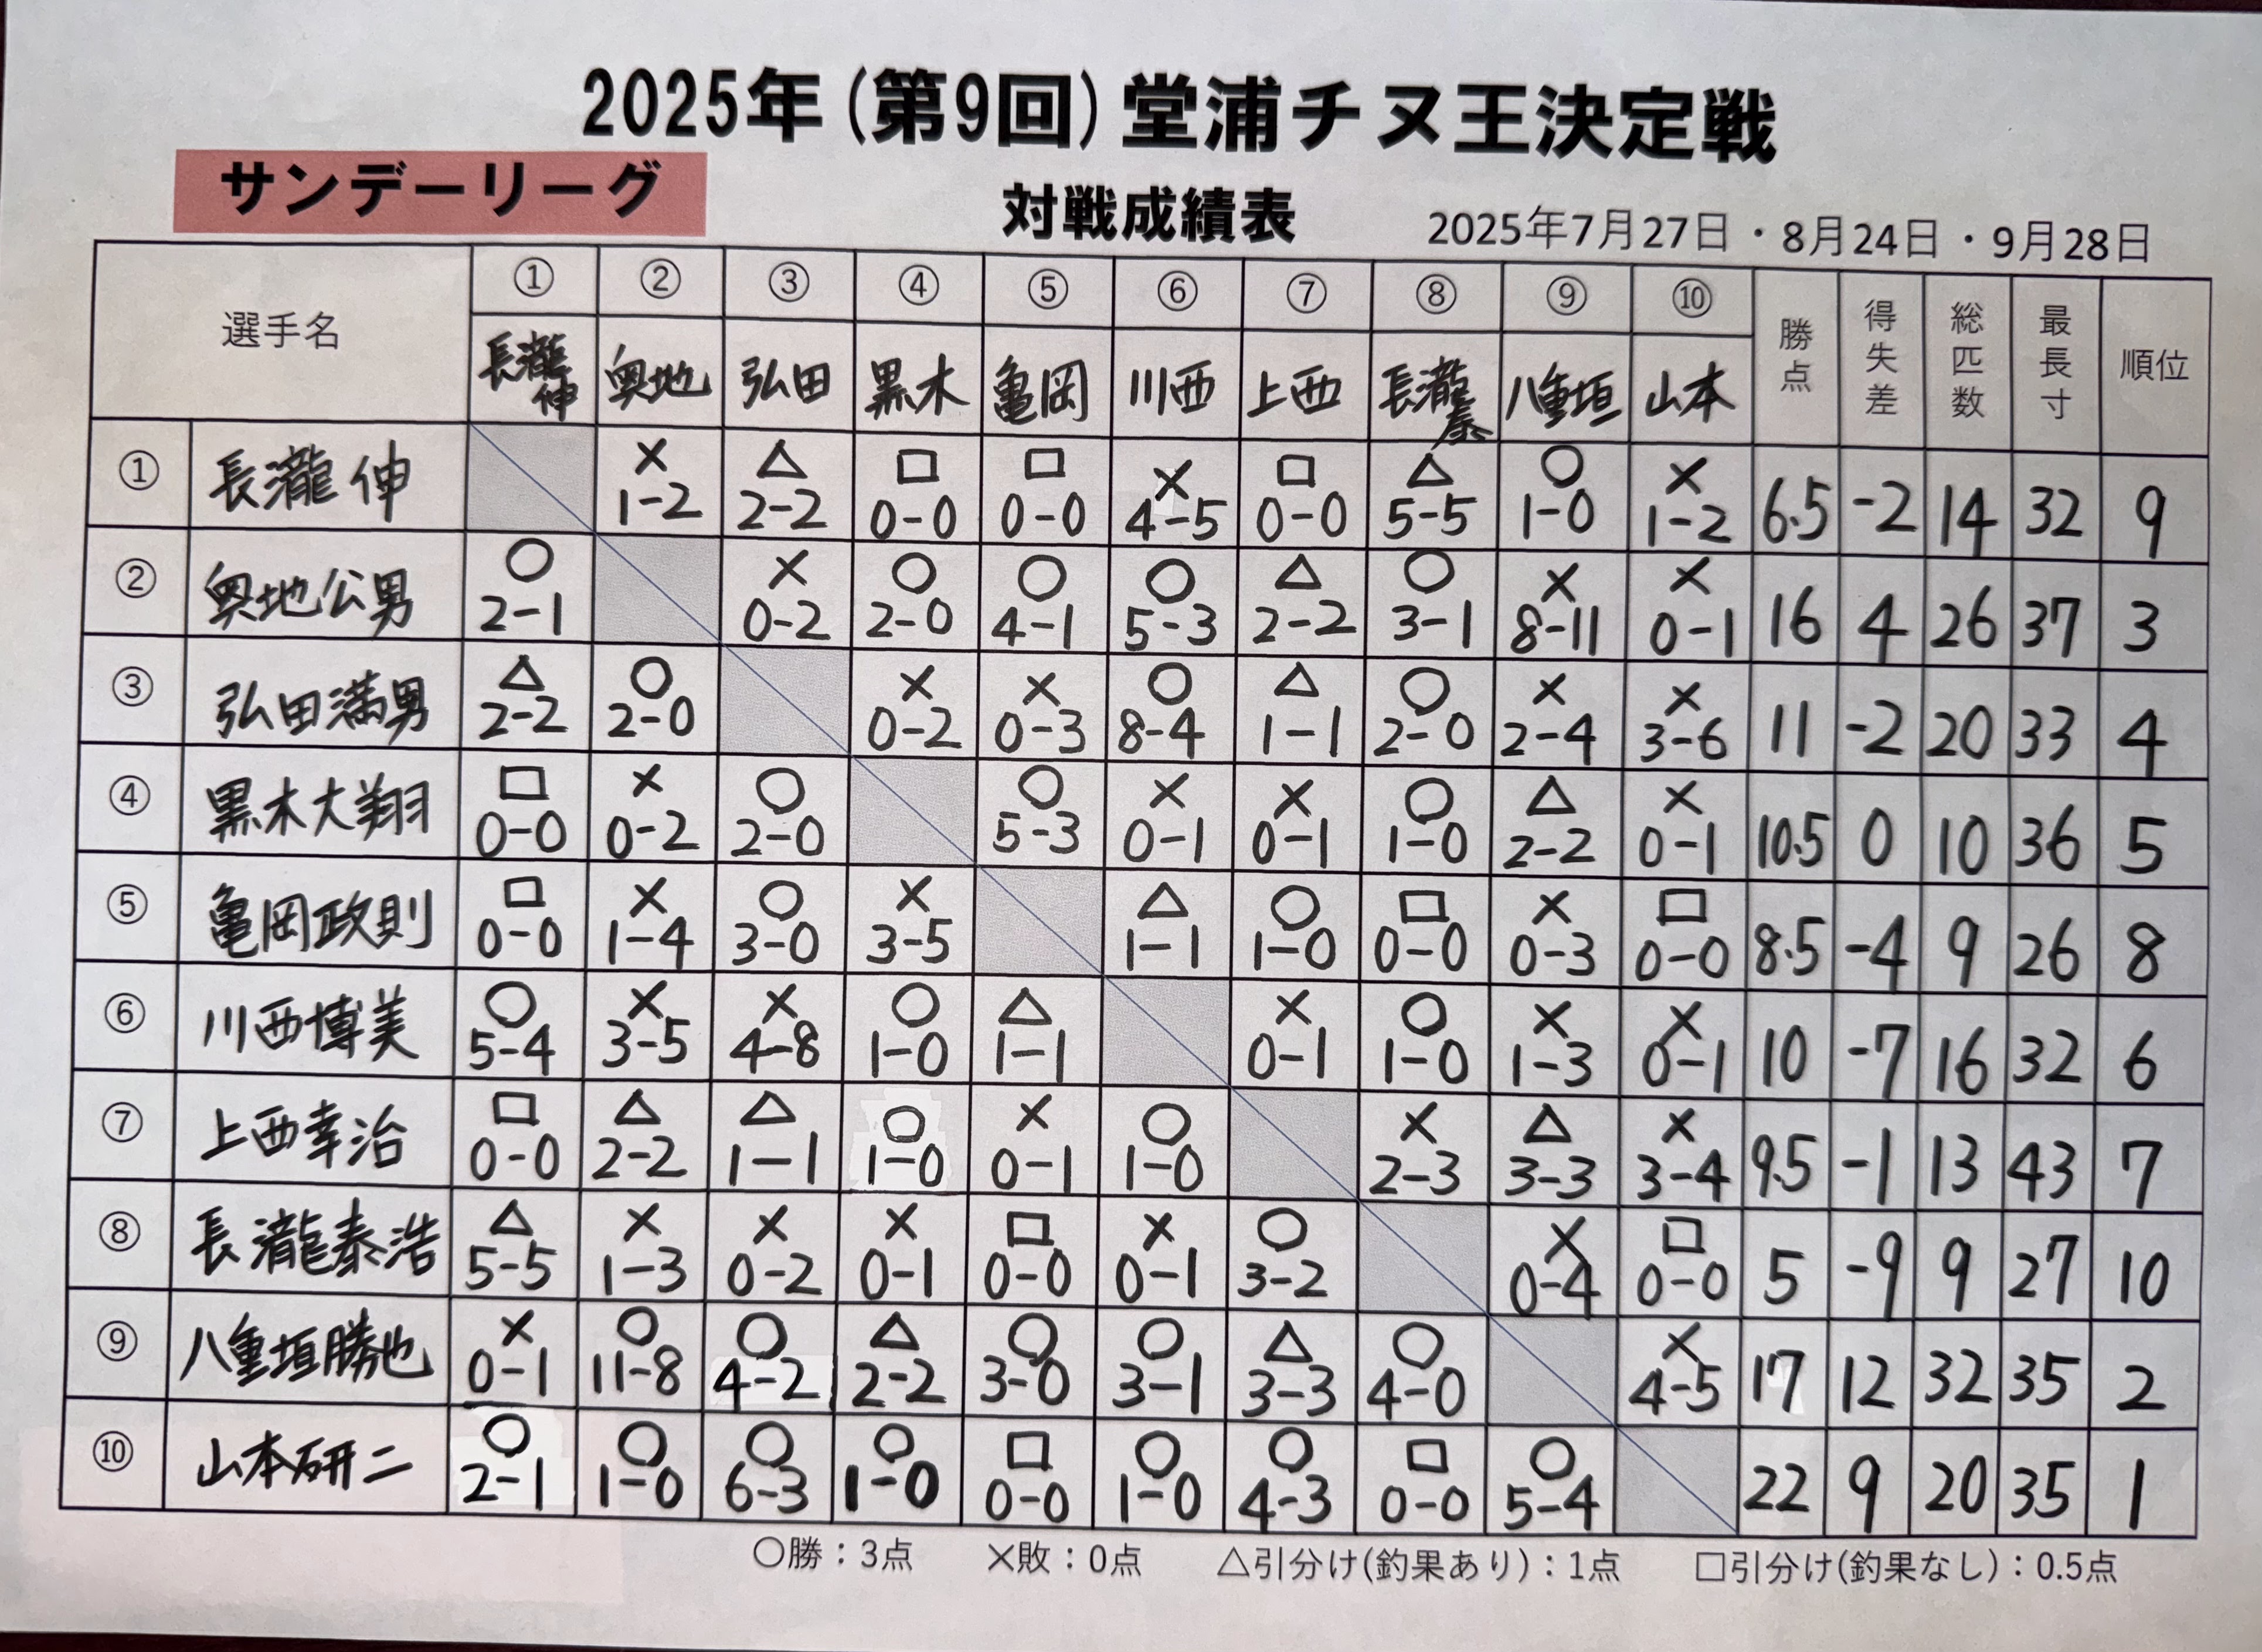 2025年(第9回)堂浦チヌ王決定戦
サンデーリーグ
対戦成績表
2025年7月27日・8月24日・9月28日
選手名 ① ② ③ ④ ⑤ ⑥ ⑦ ⑧ ⑨ ⑩ 勝点 得失差 総匹数 最長寸 順位
長瀧伸 奥地 弘田 黒木 亀岡 川西 上西 長瀧泰 八重垣 山本
① 長瀧伸 × 1-2 △ 2-2 □ 0-0 □ 0-0 × 4-5 □ 0-0 △ 5-5 ○ 1-0 × 1-2 6.5 -2 14 32 9
② 奥地公男 ○ 2-1 × 0-2 ○ 2-0 ○ 4-1 ○ 5-3 △ 2-2 ○ 3-1 × 8-11 × 0-1 16 4 26 37 3
③ 弘田満男 △ 2-2 ○ 2-0 × 0-2 × 0-3 ○ 8-4 △ 1-1 ○ 2-0 × 2-4 × 3-6 11 -2 20 33 4
④ 黒木大翔 □ 0-0 × 0-2 ○ 2-0 ○ 5-3 × 0-1 × 0-1 ○ 1-0 △ 2-2 × 0-1 10.5 0 10 36 5
⑤ 亀岡政則 □ 0-0 × 1-4 ○ 3-0 × 3-5 △ 1-1 ○ 1-0 □ 0-0 × 0-3 □ 0-0 8.5 -4 9 26 8
⑥ 川西博美 ○ 5-4 × 3-5 × 4-8 ○ 1-0 △ 1-1 × 0-1 ○ 1-0 × 1-3 × 0-1 10 -7 16 32 6
⑦ 上西幸治 □ 0-0 △ 2-2 △ 1-1 ○ 1-0 × 0-1 ○ 1-0 × 2-3 △ 3-3 × 3-4 9.5 -1 13 43 7
⑧ 長瀧泰浩 △ 5-5 × 1-3 × 0-2 × 0-1 □ 0-0 × 0-1 ○ 3-2 × 0-4 □ 0-0 5 -9 9 27 10
⑨ 八重垣勝也 × 0-1 ○ 11-8 ○ 4-2 △ 2-2 ○ 3-0 ○ 3-1 △ 3-3 ○ 4-0 × 4-5 17 12 32 35 2
⑩ 山本研二 ○ 2-1 ○ 1-0 ○ 6-3 ○ 1-0 □ 0-0 ○ 1-0 ○ 4-3 □ 0-0 ○ 5-4 22 9 20 35 1
○勝：3点 ×敗：0点 △引分け(釣果あり)：1点 □引分け(釣果なし)：0.5点